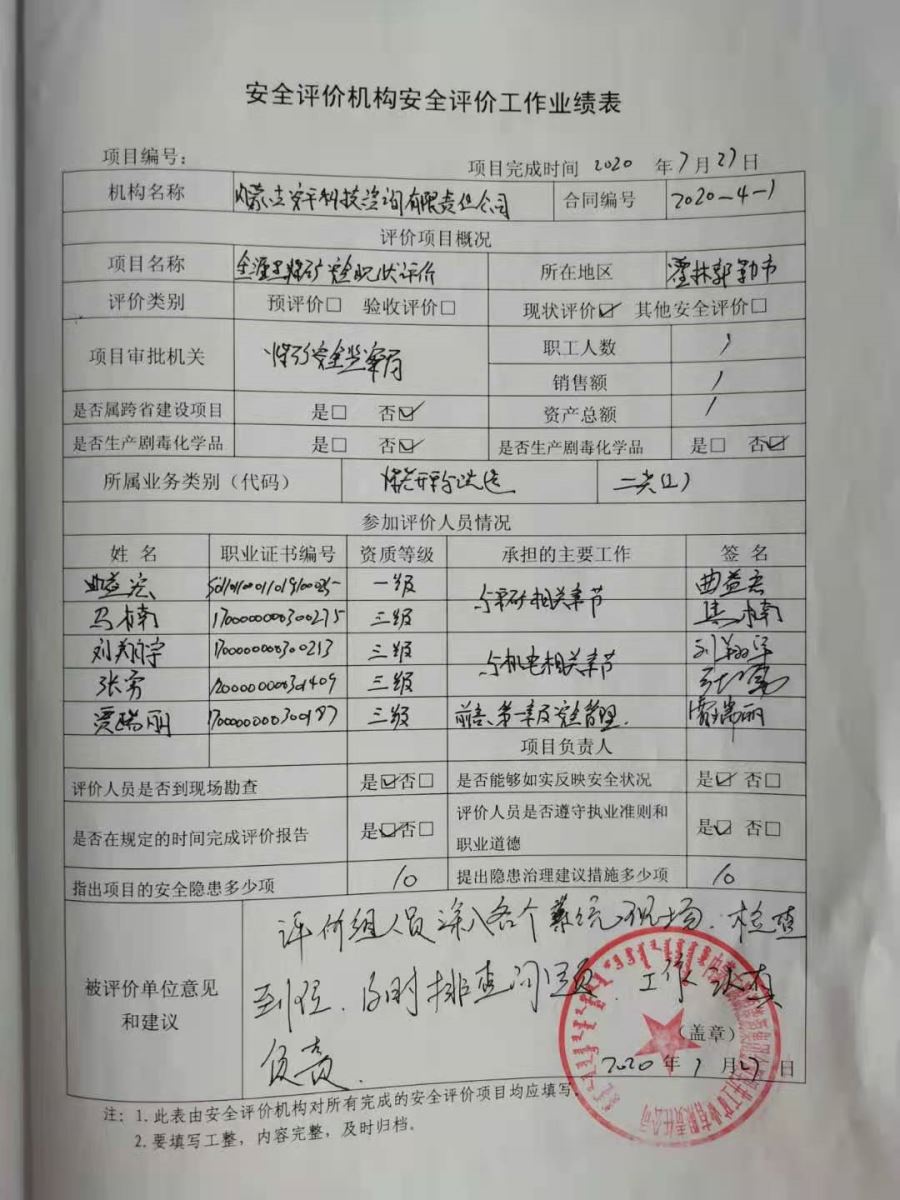 安全评价机构安全评价工作业绩表
项目编号：
项目完成时间 2020 年 7 月 27 日
机构名称 有限责任公司 合同编号 2020-4-1
评价项目概况
项目名称 金源里煤矿安全现状评价 所在地区 霍林郭勒市
评价类别 预评价□ 验收评价□ 现状评价☑ 其他安全评价□
项目审批机关 煤矿安全监察局 职工人数 /
销售额 /
是否属跨省建设项目 是□ 否☑ 资产总额 /
是否生产剧毒化学品 是□ 否☑ 是否生产剧毒化学品 是□ 否☑
所属业务类别（代码）
参加评价人员情况
姓 名 职业证书编号 资质等级 承担的主要工作 签 名
曲益宏 一级 与采矿相关章节 曲益宏
马楠 1700000000300275 三级 马楠
刘翔宇 1700000000300213 三级 与机电相关章节 刘翔宇
张穷 三级
贾瑞丽 1700000000300187 三级 前言、第一章及安全管理. 贾瑞丽
项目负责人
评价人员是否到现场勘查 是☑否□ 是否能够如实反映安全状况 是☑ 否□
是否在规定的时间完成评价报告 是☑否□ 评价人员是否遵守执业准则和
职业道德 是☑ 否□
指出项目的安全隐患多少项 10 提出隐患治理建议措施多少项 10
被评价单位意见
和建议
评价组人员深入各个系统现场.检查
到位.及时排查问题.工作认真
负责.
（盖章）
2020 年 7 月 27 日
注：1.此表由安全评价机构对所有完成的安全评价项目均应填写.
2.要填写工整，内容完整，及时归档。